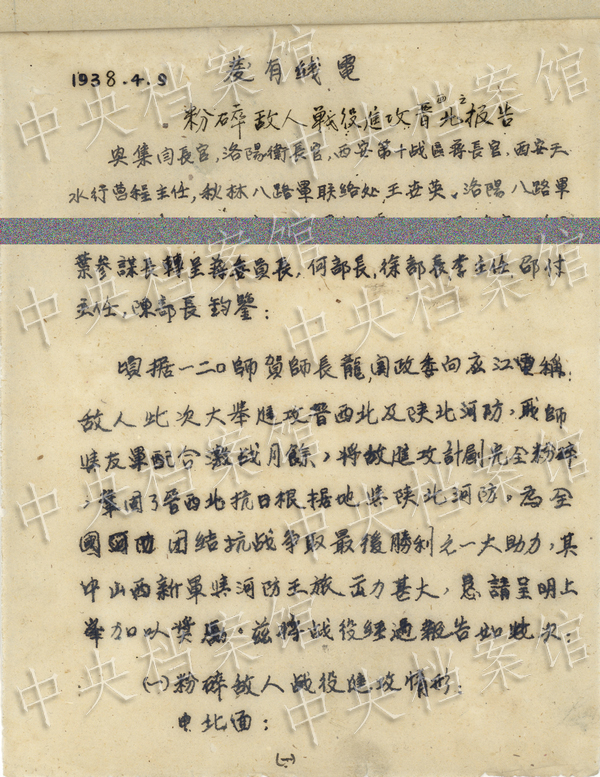 1938.4.9
发有线電
粉碎敌人戰役進攻晋西北之报告
興集閻長官,洛陽衛長官,西安第十战區蒋長官,西安天
水行营程主任,秋林八路軍联络处,王世英,洛陽八路軍
葉参謀長轉呈蒋委員長,何部長,徐部長,李主任,邵付
主任,陳部長鈞鑒:
頃据一二〇師賀師長龍,関政委向应江電稱:
敌人此次大举進攻晋西北及陕北河防,戰師
與友軍配合激战月餘,将敌進攻計劃完全粉碎
,鞏固了晋西北抗日根据地與陕北河防。為全
國团结抗战争取最後勝利之一大助力,其
中山西新軍與河防王旅出力甚大,恳請呈明上
峯加以獎励。兹将战役經過報告如次:
(一)粉碎敌人战役進攻情形:
甲北面:
(一)
中央档案馆